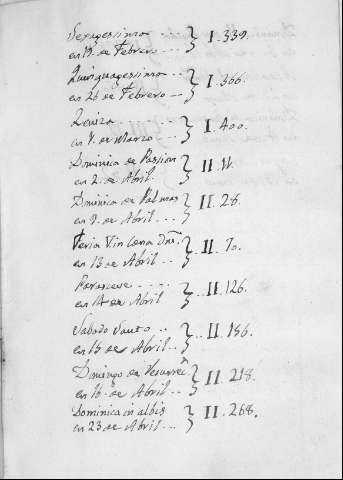 Sexagessima ... } I. 339.
en 19 de Febrero ...
Quinquagessima ... } I. 366.
en 26 de Febrero --
Zeniza ... } I. 400.
en 1. de Marzo ...
Dominica de Passion } II. 11.
en 2. de Abril.
Dominica de Palmas } II. 28.
en 9. de Abril ...
Feria V in Cena Dni. } .. II. 70.
en 13 de Abril ..
Parasceve .... } .. II. 126.
en 14 de Abril
Sabado Santo .. } .. II. 186.
en 15 de Abril ..
Domingo de Resurrēn } II. 218.
en 16. de Abril ..
Dominica in albis } II. 268.
en 23 de Abril ...